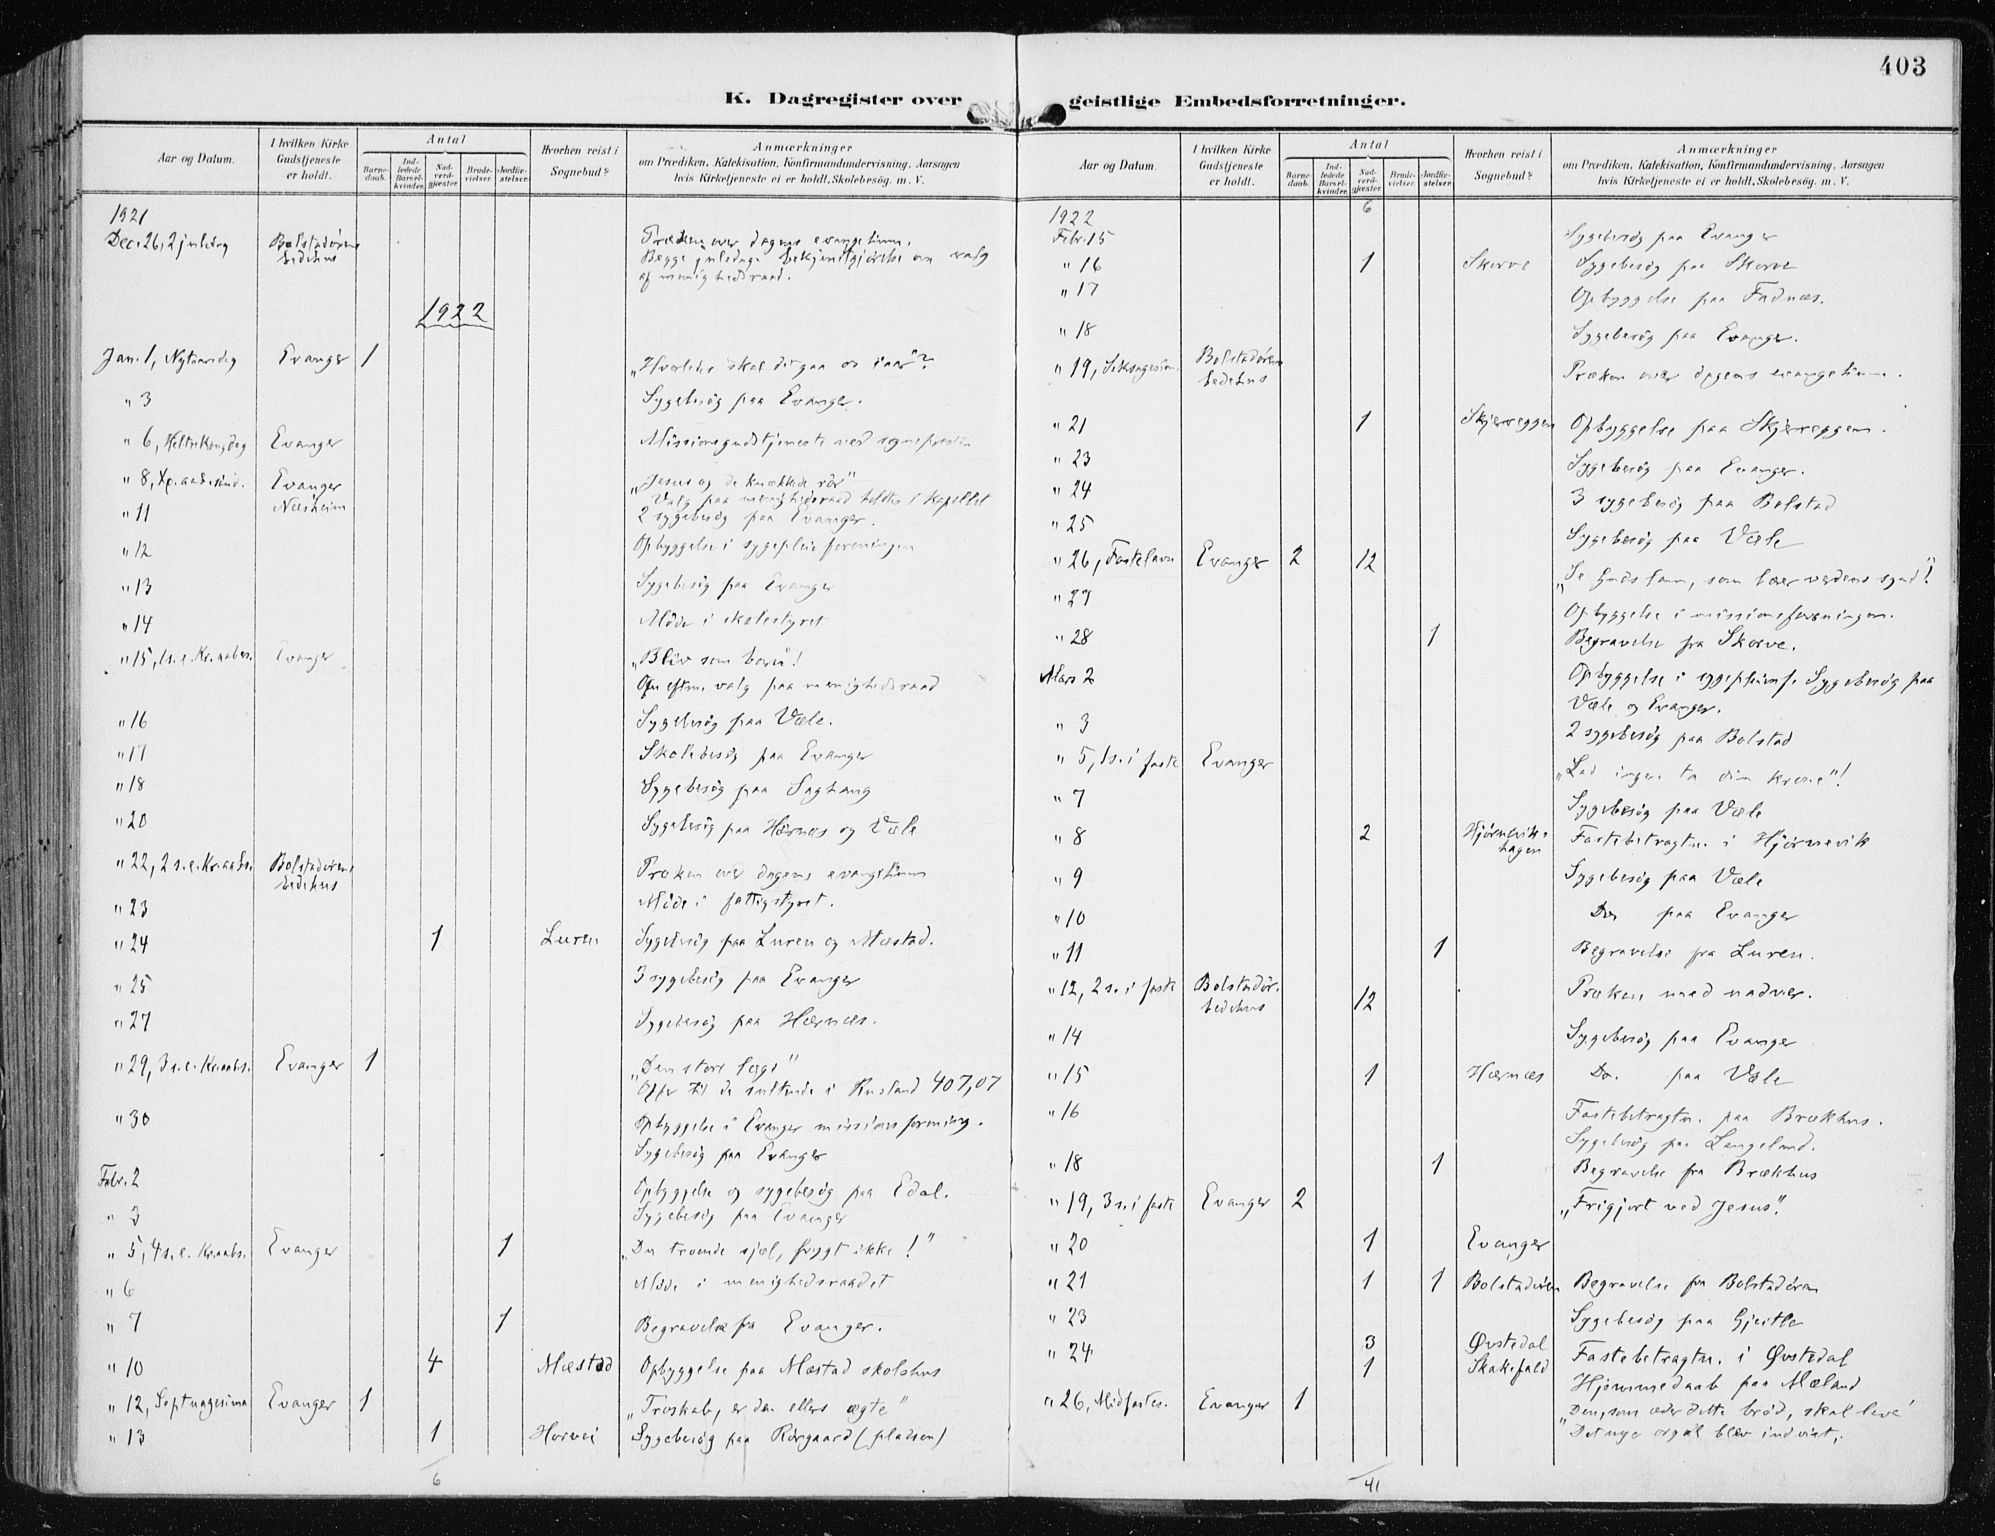 403
K. Dagregister over geistlige Embedsforretninger.
Aar og Datum. I hvilken Kirke Gudstjeneste er holdt. Antal Barnedaab. Indledede Barselkvinder. Nadverdgjæster. Brudevielser. Jordfæstelser. Hvorhen reist i Sognebud? Anmærkninger om Prædiken, Katekisation, Konfirmandundervisning, Aarsagen hvis Kirketjeneste ei er holdt, Skolebesøg. m. V.
1921
Dec. 26, 2 juledag Bolstadørens bedehus Præken over dagens evangelium.
Begge juledage bekjentgjørelse om valg
af menighedsraad.
1922
Jan. 1, Nytaarsdag Evanger 1 „Hvorledes skal det gaa os iaar"?
" 3 Sygebesøg paa Evanger.
" 6, Heltrekongdag Evanger Missionsgudstjeneste ved sognepresten
" 8, Evanger „Jesus og de knækkede rør"
Næsheim Valg paa menighedsraad holdtes i kapellet
" 11 2 sygebesøg paa Evanger.
" 12 Opbyggelse i sygepleieforeningen
" 13 Sygebesøg paa Evanger
" 14 Møde i skolestyret
" 15, 1 s. e. Kr. aabes. Evanger „Bliv som barn"!
valg paa menighedsraad
" 16 Sygebesøg paa Væle.
" 17 Skolebesøg paa Evanger
" 18 Sygebesøg paa Saghaug
" 20 Sygebesøg paa Hærnæs og Væle
" 22, 2 s. e. Kr. aabs. Bolstadørens bedehus Præken over dagens evangelium
" 23 Møde i fattigstyret.
" 24 1 Luren Sygebesøg paa Luren og Mæstad.
" 25 3 sygebesøg paa Evanger
" 27 Sygebesøg paa Hærnæs.
" 29, 3 s. e. Kr. aabs. Evanger 1 „Den store læge"
Offer til de sultende i Rusland 407,07
" 30 Opbyggelse i Evanger missionsforening.
Sygebesøg paa Evanger
Febr. 2 Opbyggelse og sygebesøg paa Edal.
" 3 Sygebesøg paa Evanger
" 5, 4 s. e. Kr. aabs. Evanger 1 „Du troende sjæl, frygt ikke!"
" 6 Møde i menighedsraadet
" 7 1 Begravelse fra Evanger.
" 10 4 Mæstad Opbyggelse paa Mæstad skolehus
" 12, Septuagesima Evanger 1 „Troskab, er den ellers ægte"
" 13 1 Horvei Sygebesøg paa Rørgaard (pladsen)
6
Aar og Datum. I hvilken Kirke Gudstjeneste er holdt. Antal Barnedaab. Indledede Barselkvinder. Nadverdgjæster. Brudevielser. Jordfæstelser. Hvorhen reist i Sognebud? Anmærkninger om Prædiken, Katekisation, Konfirmandundervisning, Aarsagen hvis Kirketjeneste ei er holdt, Skolebesøg. m. V.
1922 6
Febr. 15 Sygebesøg paa Evanger
" 16 1 Skorve Sygebesøg paa Skorve
" 17 Opbyggelse paa Fadnæs.
" 18 Sygebesøg paa Evanger.
" 19, Seksagesim. Bolstadørens bedehus Præken over dagens evangelium.
" 21 1 Skjerveggen Opbyggelse paa Skjerveggen.
" 23 Sygebesøg paa Evanger.
" 24 3 sygebesøg paa Bolstad
" 25 Sygebesøg paa Væle
" 26, Fastelavn Evanger 2 12 „Se Guds lam, som bær verdens synd"!
" 27 Opbyggelse i missionsforeningen.
" 28 1 Begravelse fra Skorve.
Mars 2 Opbyggelse i sygepleief. Sygebesøg paa
Væle og Evanger.
" 3 2 sygebesøg paa Bolstad
" 5, 1 s. i faste Evanger „Lad ingen ta din krone"!
" 7 Sygebesøg paa Væle
" 8 2 Hjørnevikhagen Fastebetragtn. i Hjørnevik
" 9 Sygebesøg paa Væle
" 10 Do. paa Evanger
" 11 1 Begravelse fra Luren.
" 12, 2 s. i faste Bolstadør. bedehus 12 Præken med nadver.
" 14 Sygebesøg paa Evanger
" 15 1 Hærnæs Do. paa Væle
" 16 Fastebetragtn. paa Brækhus.
Sygebesøg paa Langeland.
" 18 1 Begravelse fra Brækhus
" 19, 3 s. i faste Evanger 2 „Frigjort ved Jesus".
" 20 1 Evanger
" 21 1 1 Bolstadøren Begravelse fra Bolstadøren
" 23 Sygebesøg paa Gjeitle
" 24 3 Øvstedal Fastebetragtn. i Øvstedal
1 Skakefald Hjemmedaab paa Mæland
" 26, Midfastes. Evanger 1 „Den, som æder dette brød, skal leve"
Det nye orgel blev indviet.
41